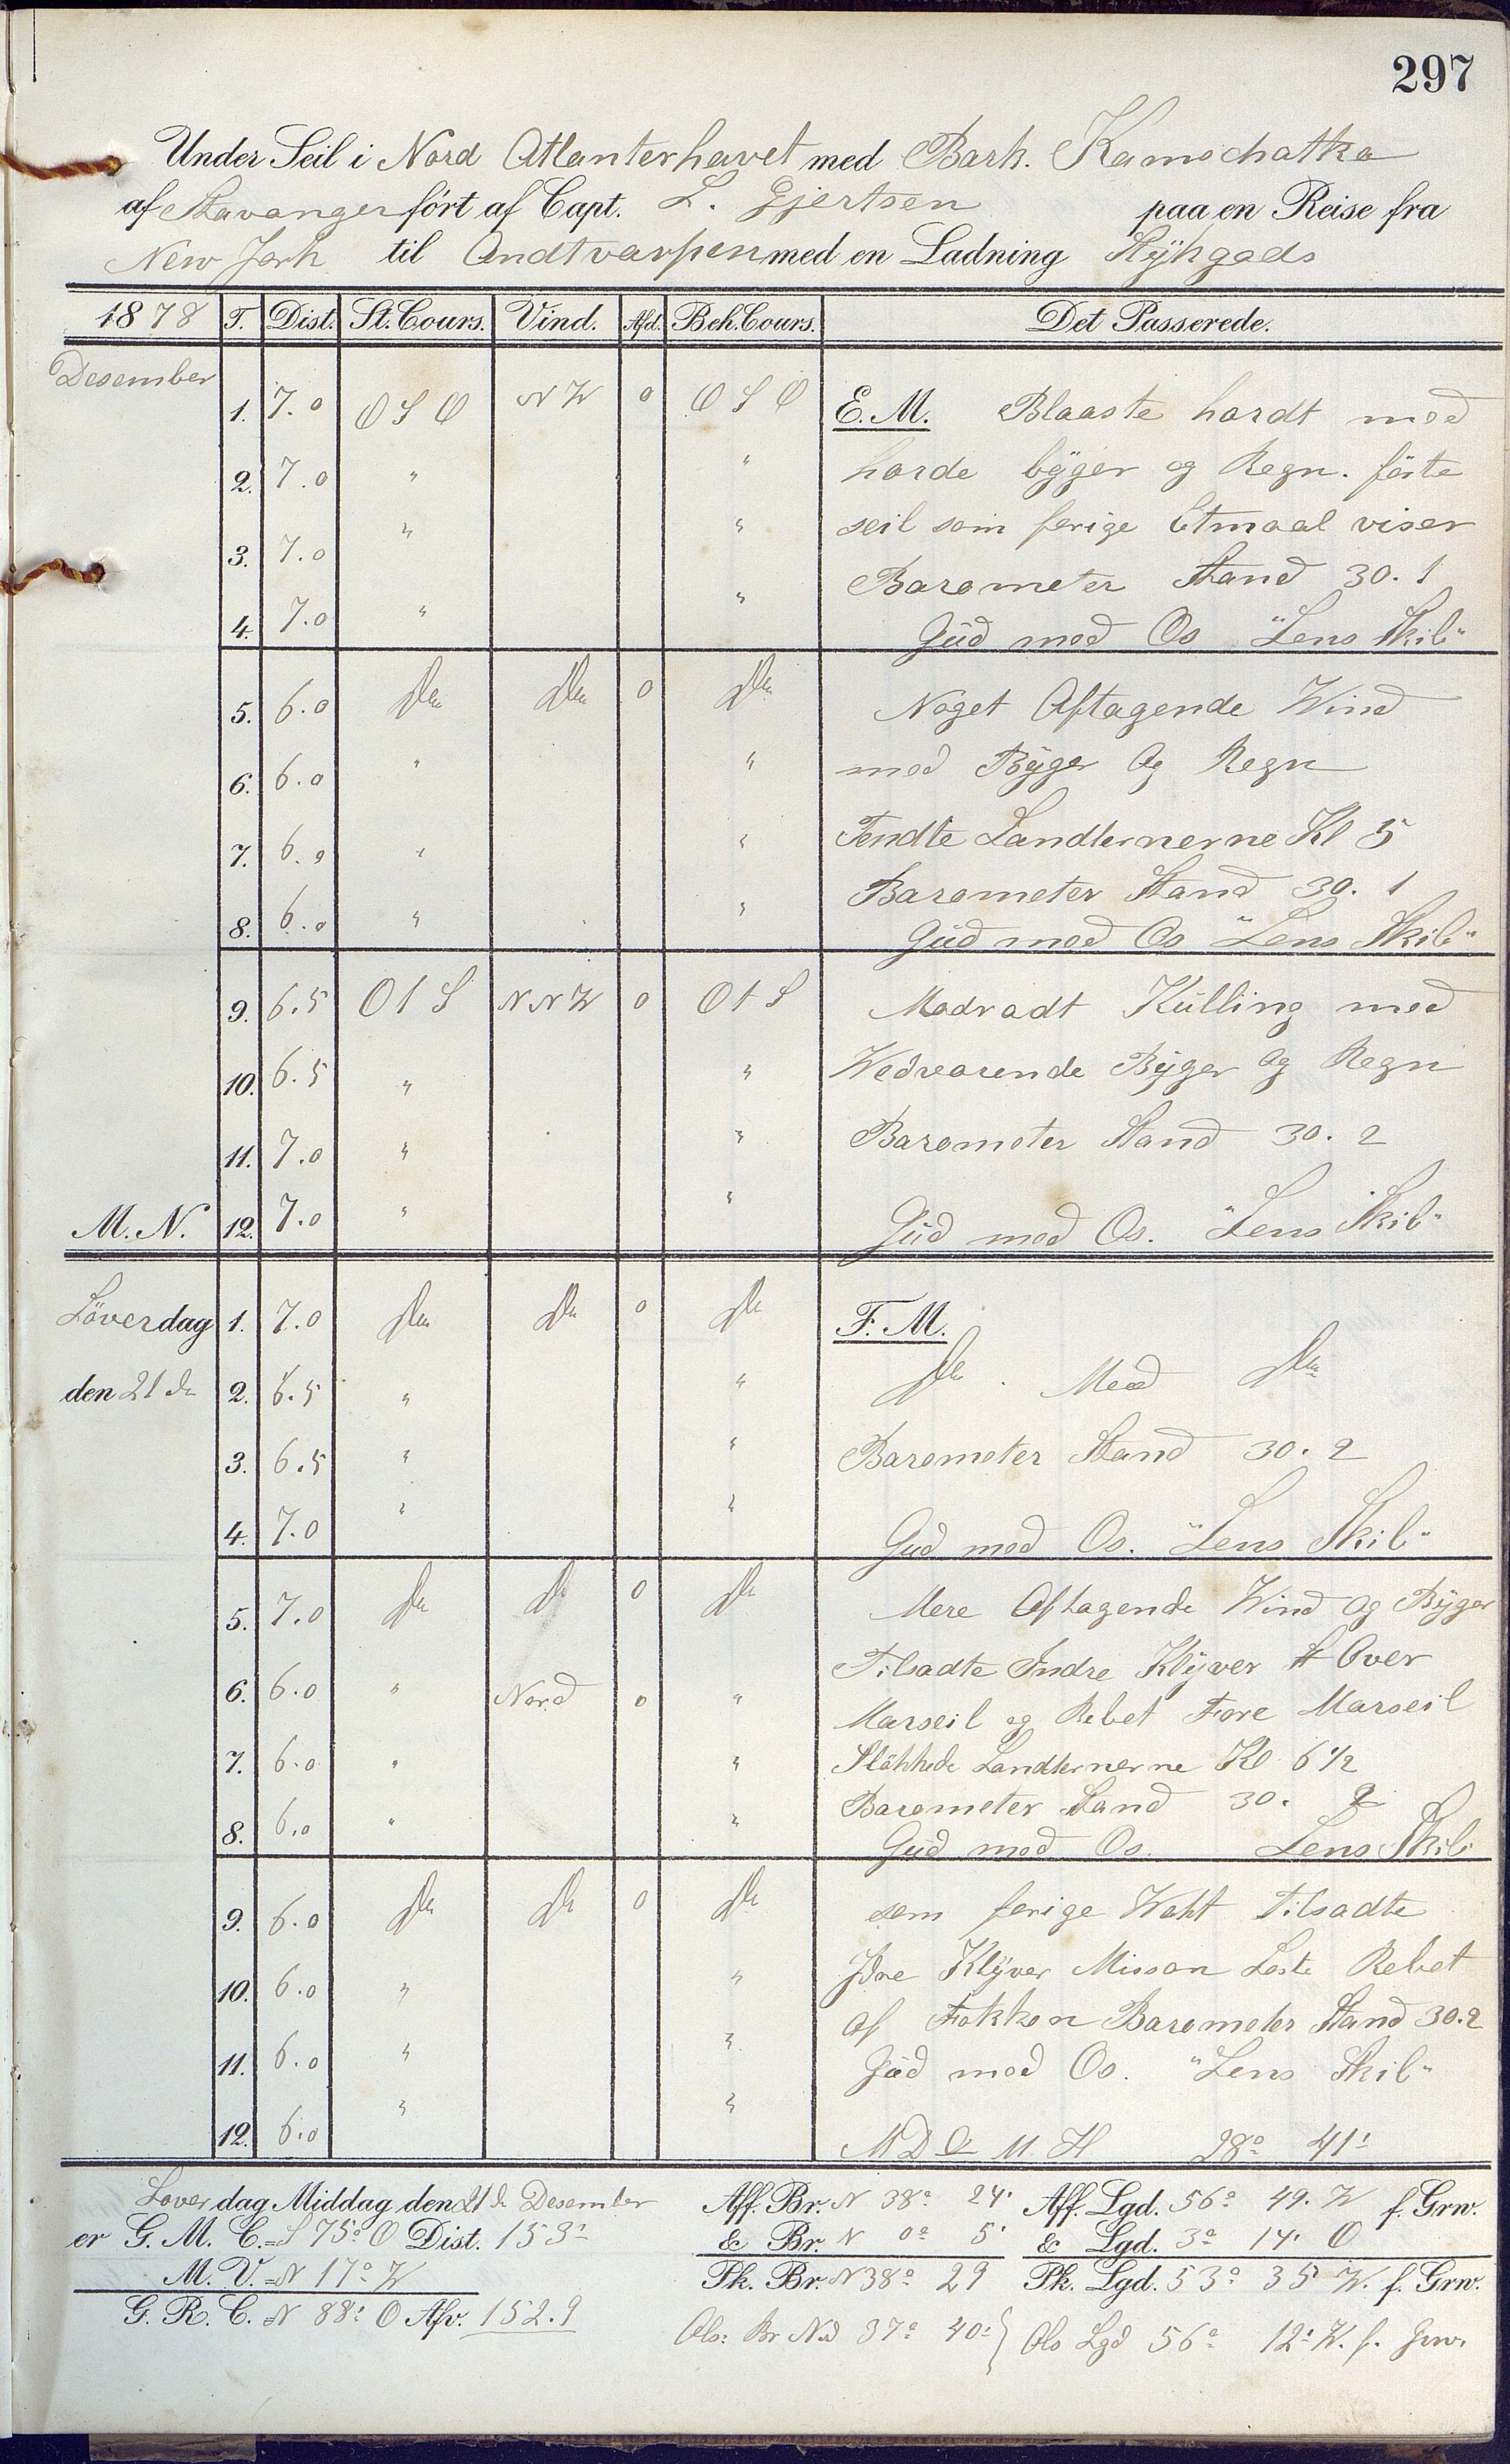 297
Under Seil i Nord Atlanterhavet med Bark. Kamschatka
af Stavanger ført af Capt. L. Gjertsen paa en Reise fra
New Jork til Andtvarpen med en Ladning Stÿkgods
1878 T. Dist. St. Cours. Vind. Afd. Beh. Cours. Det Passerede.
Desember
1. 7.0 O S O N W 0 O S O E. M. Blaaste hardt med
2. 7.0 " " harde bÿger og Regn. förte
3. 7.0 " " seil som forige Etmaal viser
Barometer Stand 30.1
4. 7.0 " " Gud med Os "Lens Skib"
5. 6.0 do do 0 do Noget Aftagende Wind
6. 6.0 " " med Bÿger Og Regn
7. 6.0 " " Tendte Landternerne Kl 5
Barometer Stand 30.1
8. 6.0 " " Gud med Os "Lens Skib"
9. 6.5 O t S N N W 0 O t S Modradt Kulling med
10. 6.5 " " Wedvarende Bÿger Og Regn
11. 7.0 " " Barometer Stand 30.2
M. N. 12. 7.0 " " Gud med Os. "Lens Skib"
Löverdag 1. 7.0 do do 0 do F. M.
den 21 de 2. 6.5 " " do Med do
3. 6.5 " " Barometer Stand 30.2
4. 7.0 " " Gud med Os. "Lens Skib"
5. 7.0 do do 0 do Mere Aftagende Wind Og Bÿger
6. 6.0 " Nord 0 " Tilsadte Indre Klÿver St Over
Marseil og Rebet Fore Marseil
7. 6.0 " " Slökkede Landternerne Kl 6 1/2
Barometer Stand 30. 2
8. 6.0 " " Gud med Os. Lens Skib
9. 6.0 do do 0 do som forige Wakt Tilsadte
10. 6.0 " " Jdre Klÿver Missan Löste Rebet
af Fokken Barometer Stand 30.2
11. 6.0 " " Gud med Os. "Lens Skib"
12. 6.0 " " M D O M. H 28° 41'
Lover dag Middag den 21 de Desember Aff. Br. N 38° 24' Aff. Lgd. 56° 49. W f. Grw.
er G. M. C. = S 75° O Dist. 153' & Br. N 0° 5' & Lgd. 3° 14' O
M. V. = N 17° W Pk. Br. N 38° 29 Pk. Lgd. 53° 35 W. f. Grw.
G. R. C. N 88° O Afv. 152.9
Obs: Br Nd 37° 40' Obs Lgd 56° 12' W. f. Grw.